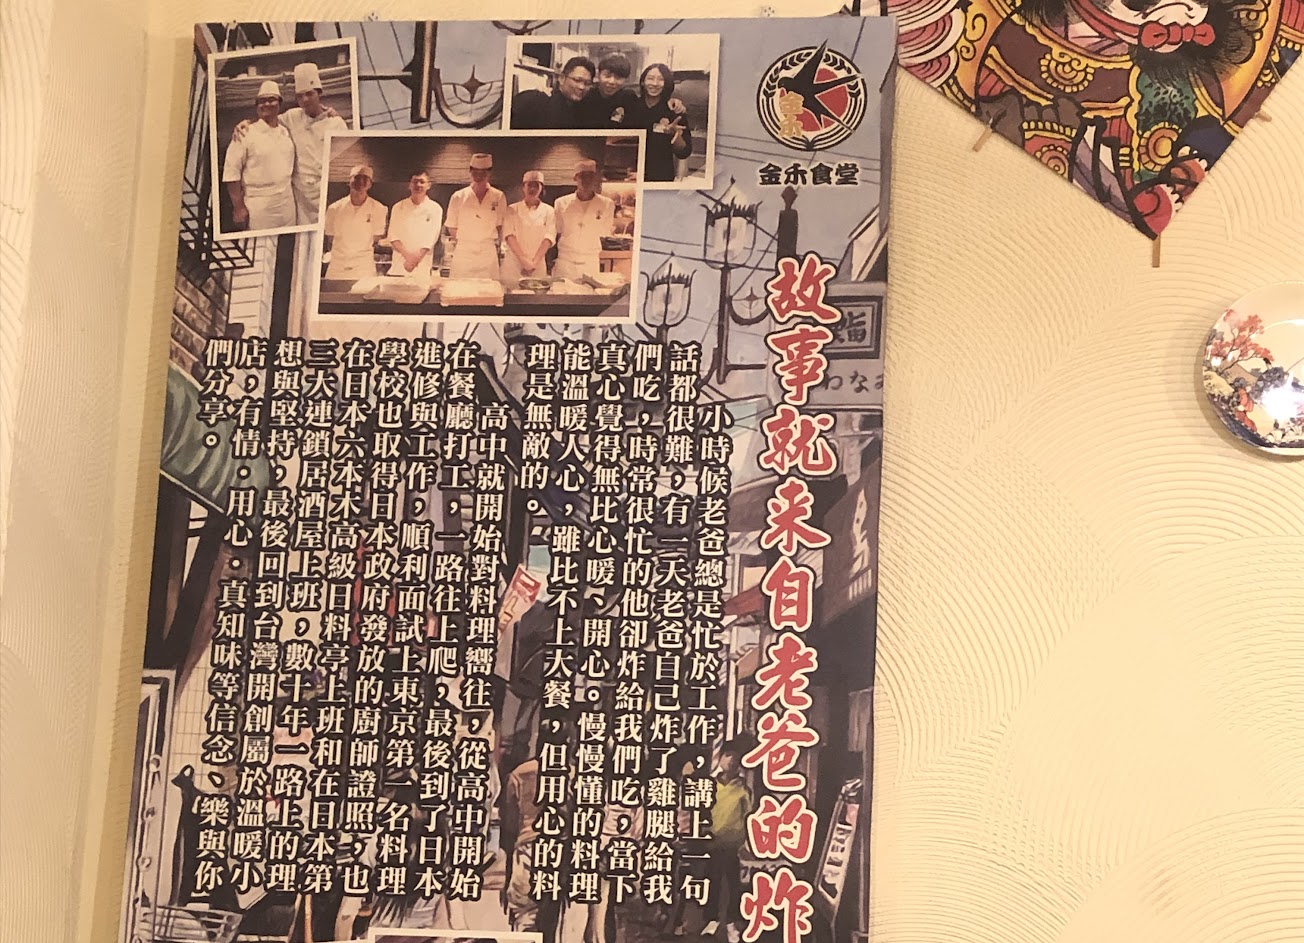 金禾
金禾食堂
故事就来自老爸的炸
小時候老爸總是忙於工作，講上一句
話都很難，有一天老爸自己炸了雞腿給我
們吃，時常很忙的他卻炸給我們吃，當下
真心覺得無比心暖、開心。慢慢懂的料理
能溫暖人心，雖比不上大餐，但用心的料
理是無敵的。
高中就開始對料理嚮往，從高中開始
在餐廳打工，一路往上爬，最後到了日本
進修與工作，順利面試上東京第一名料理
學校也取得日本政府發放的廚師證照，也
在日本六本木高級日料亭上班和在日本第
三大連鎖居酒屋上班，數十年一路上的理
想與堅持，最後回到台灣開創屬於溫暖小
店，有情．用心．真知味等信念、樂與你
們分享。
わなみ